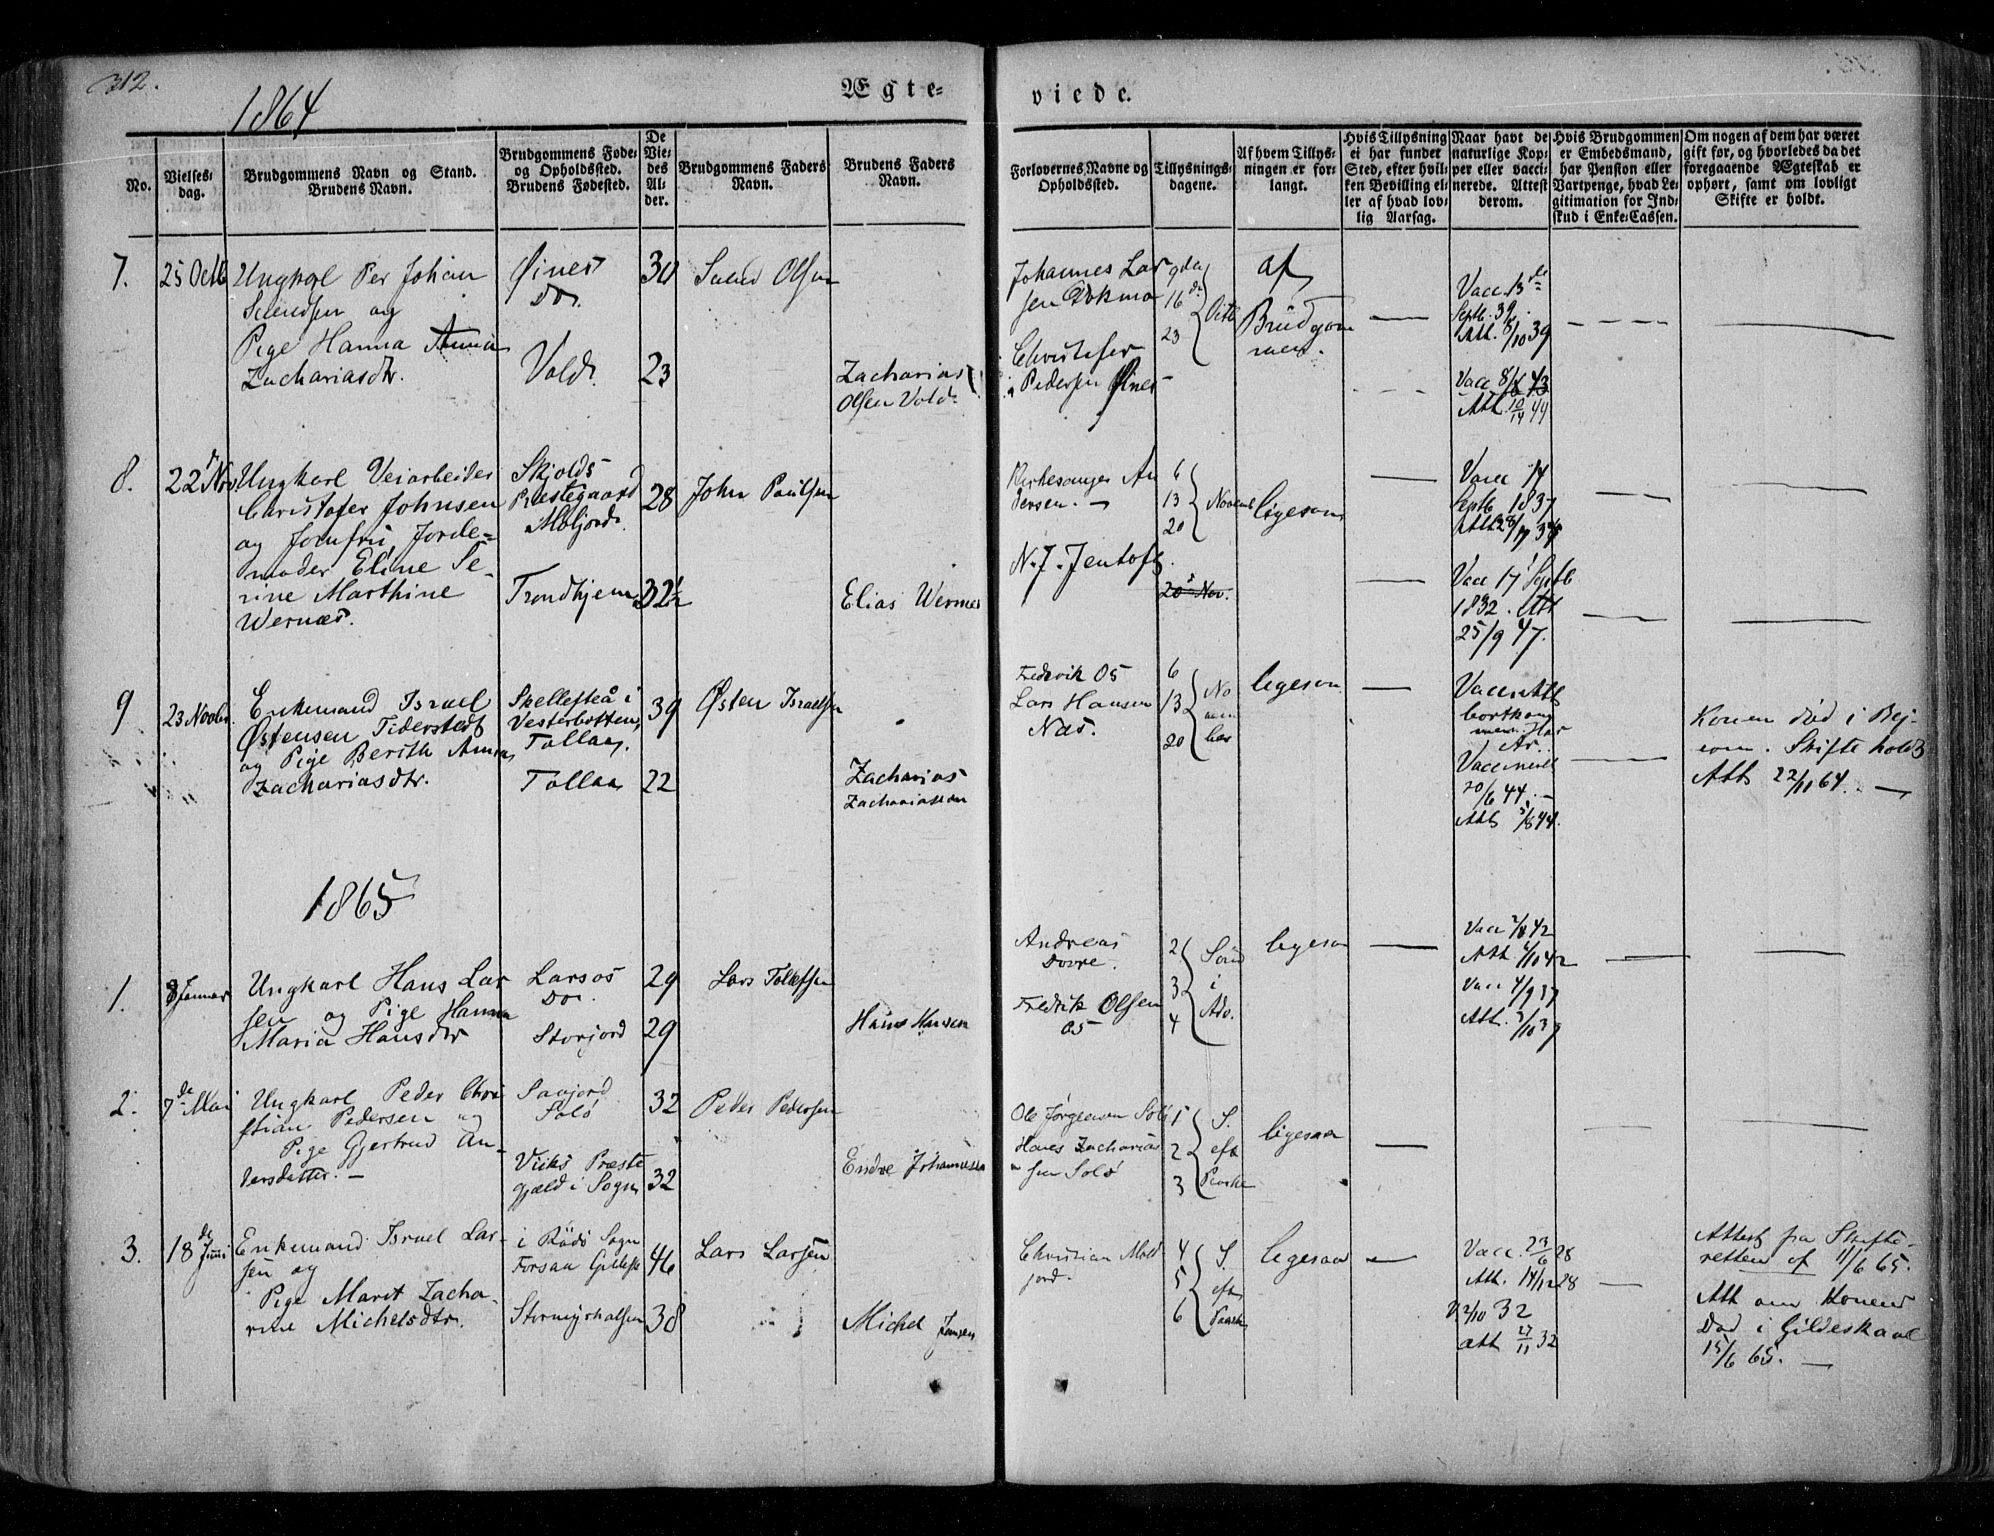 312.
1864
Ægte-
viede.
No.
Vielses-
dag.
Brudgommens Navn og Stand.
Brudens Navn.
Brudgommens Føde-
og Opholdssted.
Brudens Fødested.
De
Vie-
des
Al-
der.
Brudgommens Faders
Navn.
Brudens Faders
Navn.
Forlovernes Navne og
Opholdssted.
Tillysnings-
dagene.
Af hvem Tillys-
ningen er for-
langt.
Hvis Tillysning
ei har fundet
Sted, efter hvil-
ken Bevilling el-
ler af hvad lov-
lig Aarsag.
Naar havt de
naturlige Kop-
per eller vacci-
nerede. Attest
derom.
Hvis Brudgommen
er Embedsmand,
har Pension eller
Vartpenge, hvad Le-
gitimation for Ind-
skud i Enke-Cassen.
Om nogen af dem har været
gift før, og hvorledes da det
foregaaende Ægteskab er
ophørt, samt om lovligt
Skifte er holdt.
7.
25 Octb
Per Johan
og
Pige Hanna Anna
Zachariasdtr.
Øines
Do.
Vold.
30
23
Olsen
Zacharias
Olsen Vold.
Johannes Lar
sen
Christofer
Pedersen Øines
9de
16de
23
Octb
af
Brudgom
men.
Vacc. 13de
Septb. 39.
Att. 8/10 39
Vacc 8/6 43
Att. 10/14 44
8.
22 Nov.
Ungkarl Veiarbeider
Christofer Johnsen
og Jomfru, Jorde-
moder Eline Se-
rine Marthine
Wernæs.
Skjolds
Præstegaard
Trondhjem
28
32½
John Paulsen
Elias Wernes
Kirkesanger An
dersen. —
N. J. Jentoft.
6
13
20
Novemb
20 Nov.
ligesom
Vacc 14
Septb 1837
Vacc 17 Septb
1832. Att
25/9 47.
9
23 Novbr.
Enkemand Israel
Østensen
og Pige Berith Anna
Zachariasdtr.
Skellefteå i
Vesterbotten,
Tollaa.
Tollaa
39
22
Østen Israelsen
Zacharias
Zachariassen
Fredrik Os
Lars Hansen
Nas.
6
13
20
No
vem
ber
ligesom
Vacc. Att
bortkom
men. Har
Ar.
20/6 44. —
Att 3/8 44.
Konen død i Bej
ern. Skifte holdt
Att 22/11 64. —
1865
1.
8 Januar
Ungkarl Hans Lar
sen og Pige Hanna
Maria Hansdtr
Larsos
Do.
Storjord
29
29
Lars
Hans Hansen
Andreas
Dovre.
Fredrik Olsen
Os
2
3
4
Sønd
i
Adv.
ligesom
Vacc 7/8 42
Att 2/10 42
Vacc 4/9 37
Att. 3/10 39
2.
7de Mai
Ungkarl Peder Chri
stian Pedersen og
Pige Gjertrud An-
dersdatter. —
Savjord
Solø
Viiks Præste
gjæld i Sogn
32
32
Peder Pedersen
Endre Johannesen
Ole Jørgensen Solø
Hans Zacharias
sen Solø
1
2
3
S.
eft
Paaske
ligesaa
3.
18de Juni
Enkemand Israel Lar-
sen og
Pige Marit Zacha-
rine Michelsdtr.
i Rödö Sogn
Forsaa
46
38
Lars Larsen
Michel Jensen
Christian Mold
jord.
4
5
6
S.
eft
Paaske
ligesaa
Vacc. 23/6 28
Att. 14/12 28
V. 2/10 32
att 27/11 32
Attest fra Skifte-
retten af 11/6 65.
Att om Konens
Død i Gildeskaal
15/6 65. —